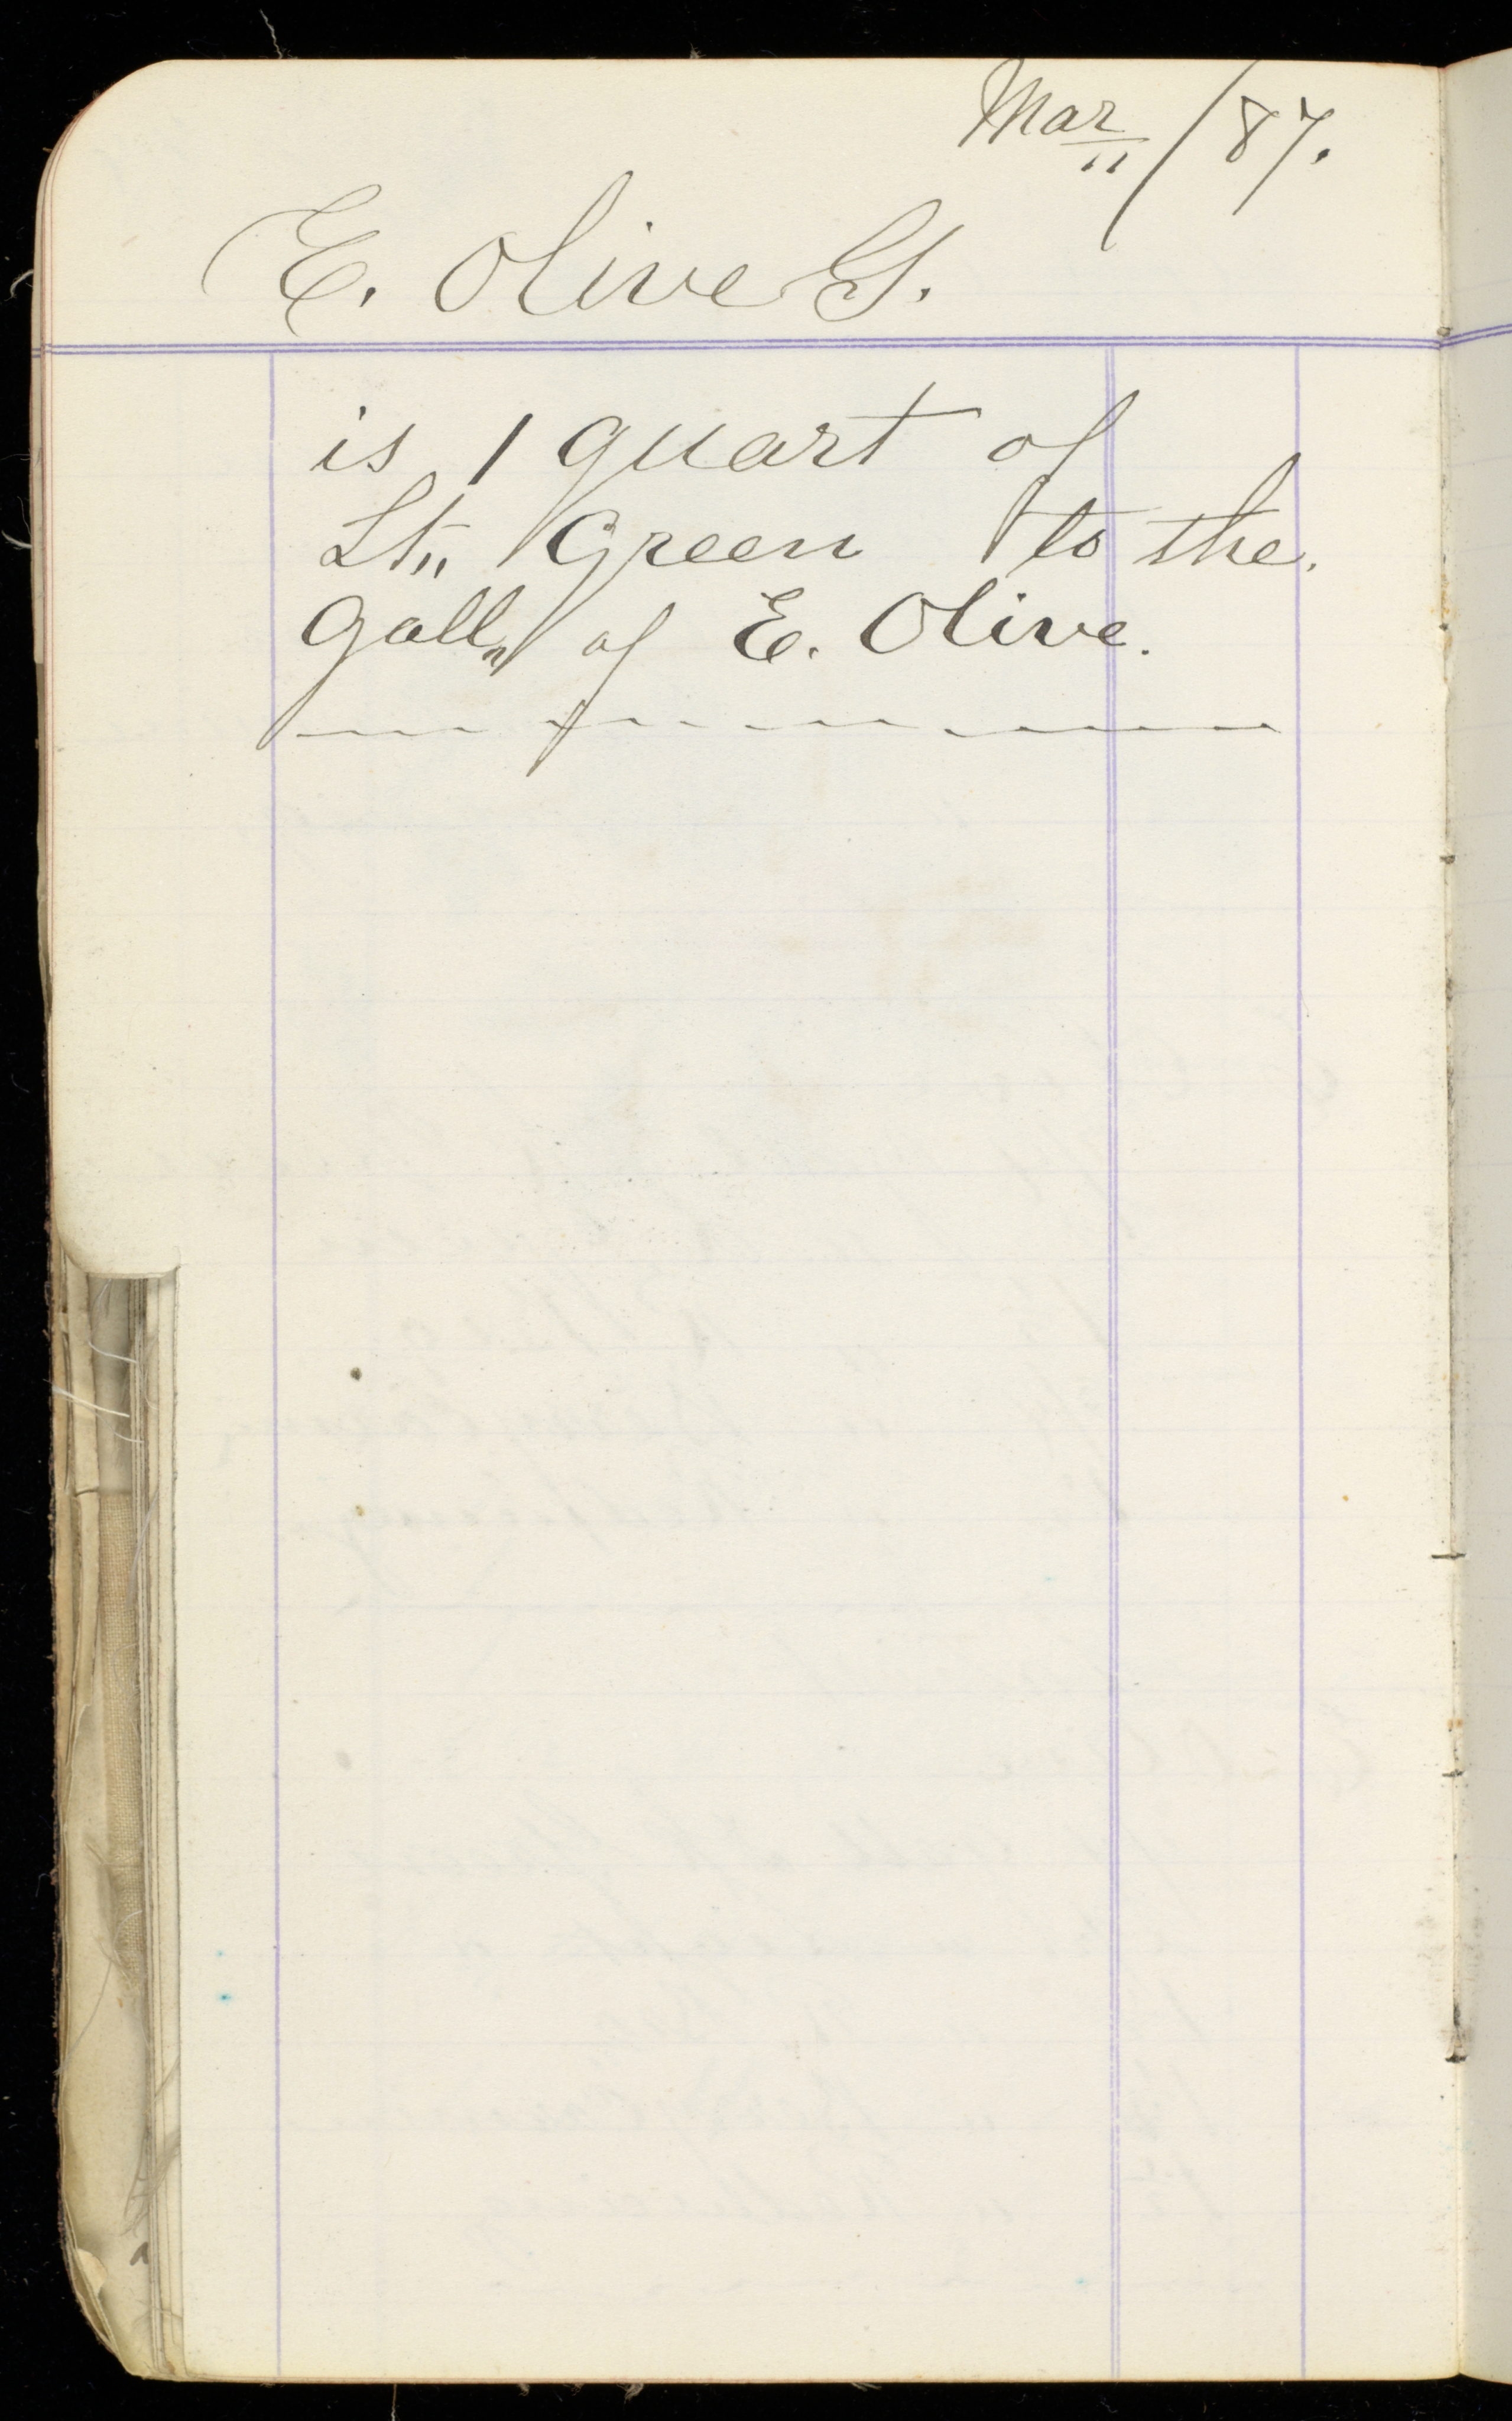 Mar 11/87.
E. Olive G.
is 1 quart of
Lt" Green to the.
Gall" of E. Olive.